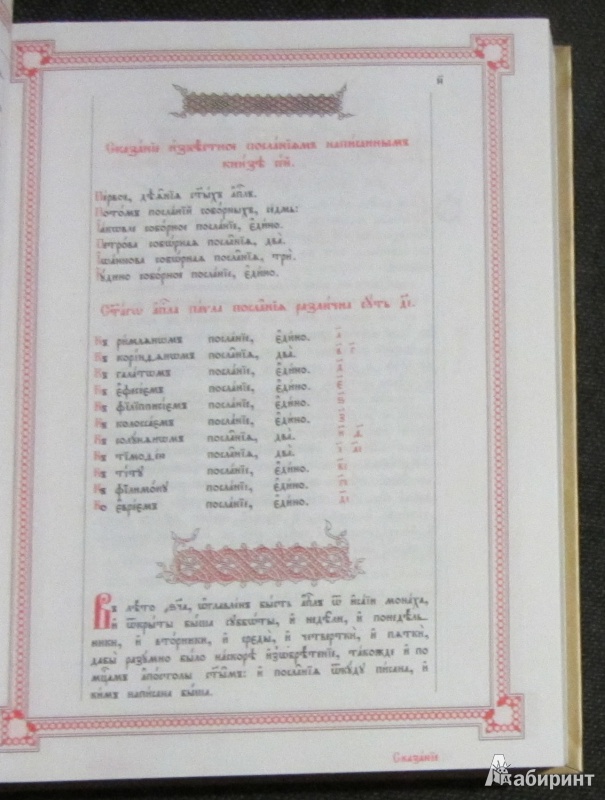 й
Сказа́нїе и҆звѣ́стное посла́нїѧмъ напи́саннымъ
кни́зѣ се́й.
Пе́рвое, дѣѧ̑нїѧ ст҃ы́хъ а҆пⷭ҇лъ.
Пото́мъ посла́нїй собо́рныхъ, се́дмь:
І҆а́кѡвле собо́рное посла́нїе, є҆ди́но.
Петро́ва собѡ́рнаѧ посла̑нїѧ, два̀.
І҆ѡа́ннова собѡ́рнаѧ посла̑нїѧ, трѝ.
І҆у́дино собо́рное посла́нїе, є҆ди́но.
Ст҃а́гѡ а҆пⷭ҇ла па́ѵла посла̑нїѧ разли̑чна сꙋ́ть д҃і.
Къ ри́млѧнѡмъ посла́нїе, є҆ди́но. а҃
Къ корі́нѳѧнѡмъ посла̑нїѧ, два̀. в҃ г҃
Къ гала́тѡмъ посла́нїе, є҆ди́но. д҃
Къ є҆фесе́ємъ посла́нїе, є҆ди́но. є҃
Къ фїлїпписі́ємъ посла́нїе, є҆ди́но. ѕ҃
Къ колосса́ємъ посла́нїе, є҆ди́но. з҃
Къ солꙋ́нѧнѡмъ посла̑нїѧ, два̀. и҃ ѳ҃
Къ тїмоѳе́ю посла̑нїѧ, два̀. і҃ а҃і
Къ ті́тꙋ посла́нїе, є҆ди́но. в҃і
Къ фїлимо́нꙋ посла́нїе, є҆ди́но. г҃і
Ко є҆вре́ємъ посла́нїе, є҆ди́но. д҃і
Въ лѣ́то ҂зч҃а, ѡ҆главле́нъ бы́сть а҆пⷭ҇лъ ѿ и҆са́їи мона́ха,
и҆ ѿкры̑ты бы́ша сꙋббѡ̑ты, и҆ недѣ̑ли, и҆ понедѣ́ль-
ники, и҆ вто́рники, и҆ среды̀, и҆ четвертки̑, и҆ пѧтки̑,
дабы̀ разꙋ́мно бы́ло на́скорѣ и҆з̾ѡбрѣ́тенїе, та́кожде и҆ по
мцⷭ҇амъ а҆по́столы ст҃ы́мъ: и҆ посла̑нїѧ ѿкꙋ́дꙋ пи̑сана, и҆
ки́мъ напи̑сана бы́ша.
Сказа́нїе
Лабиринт